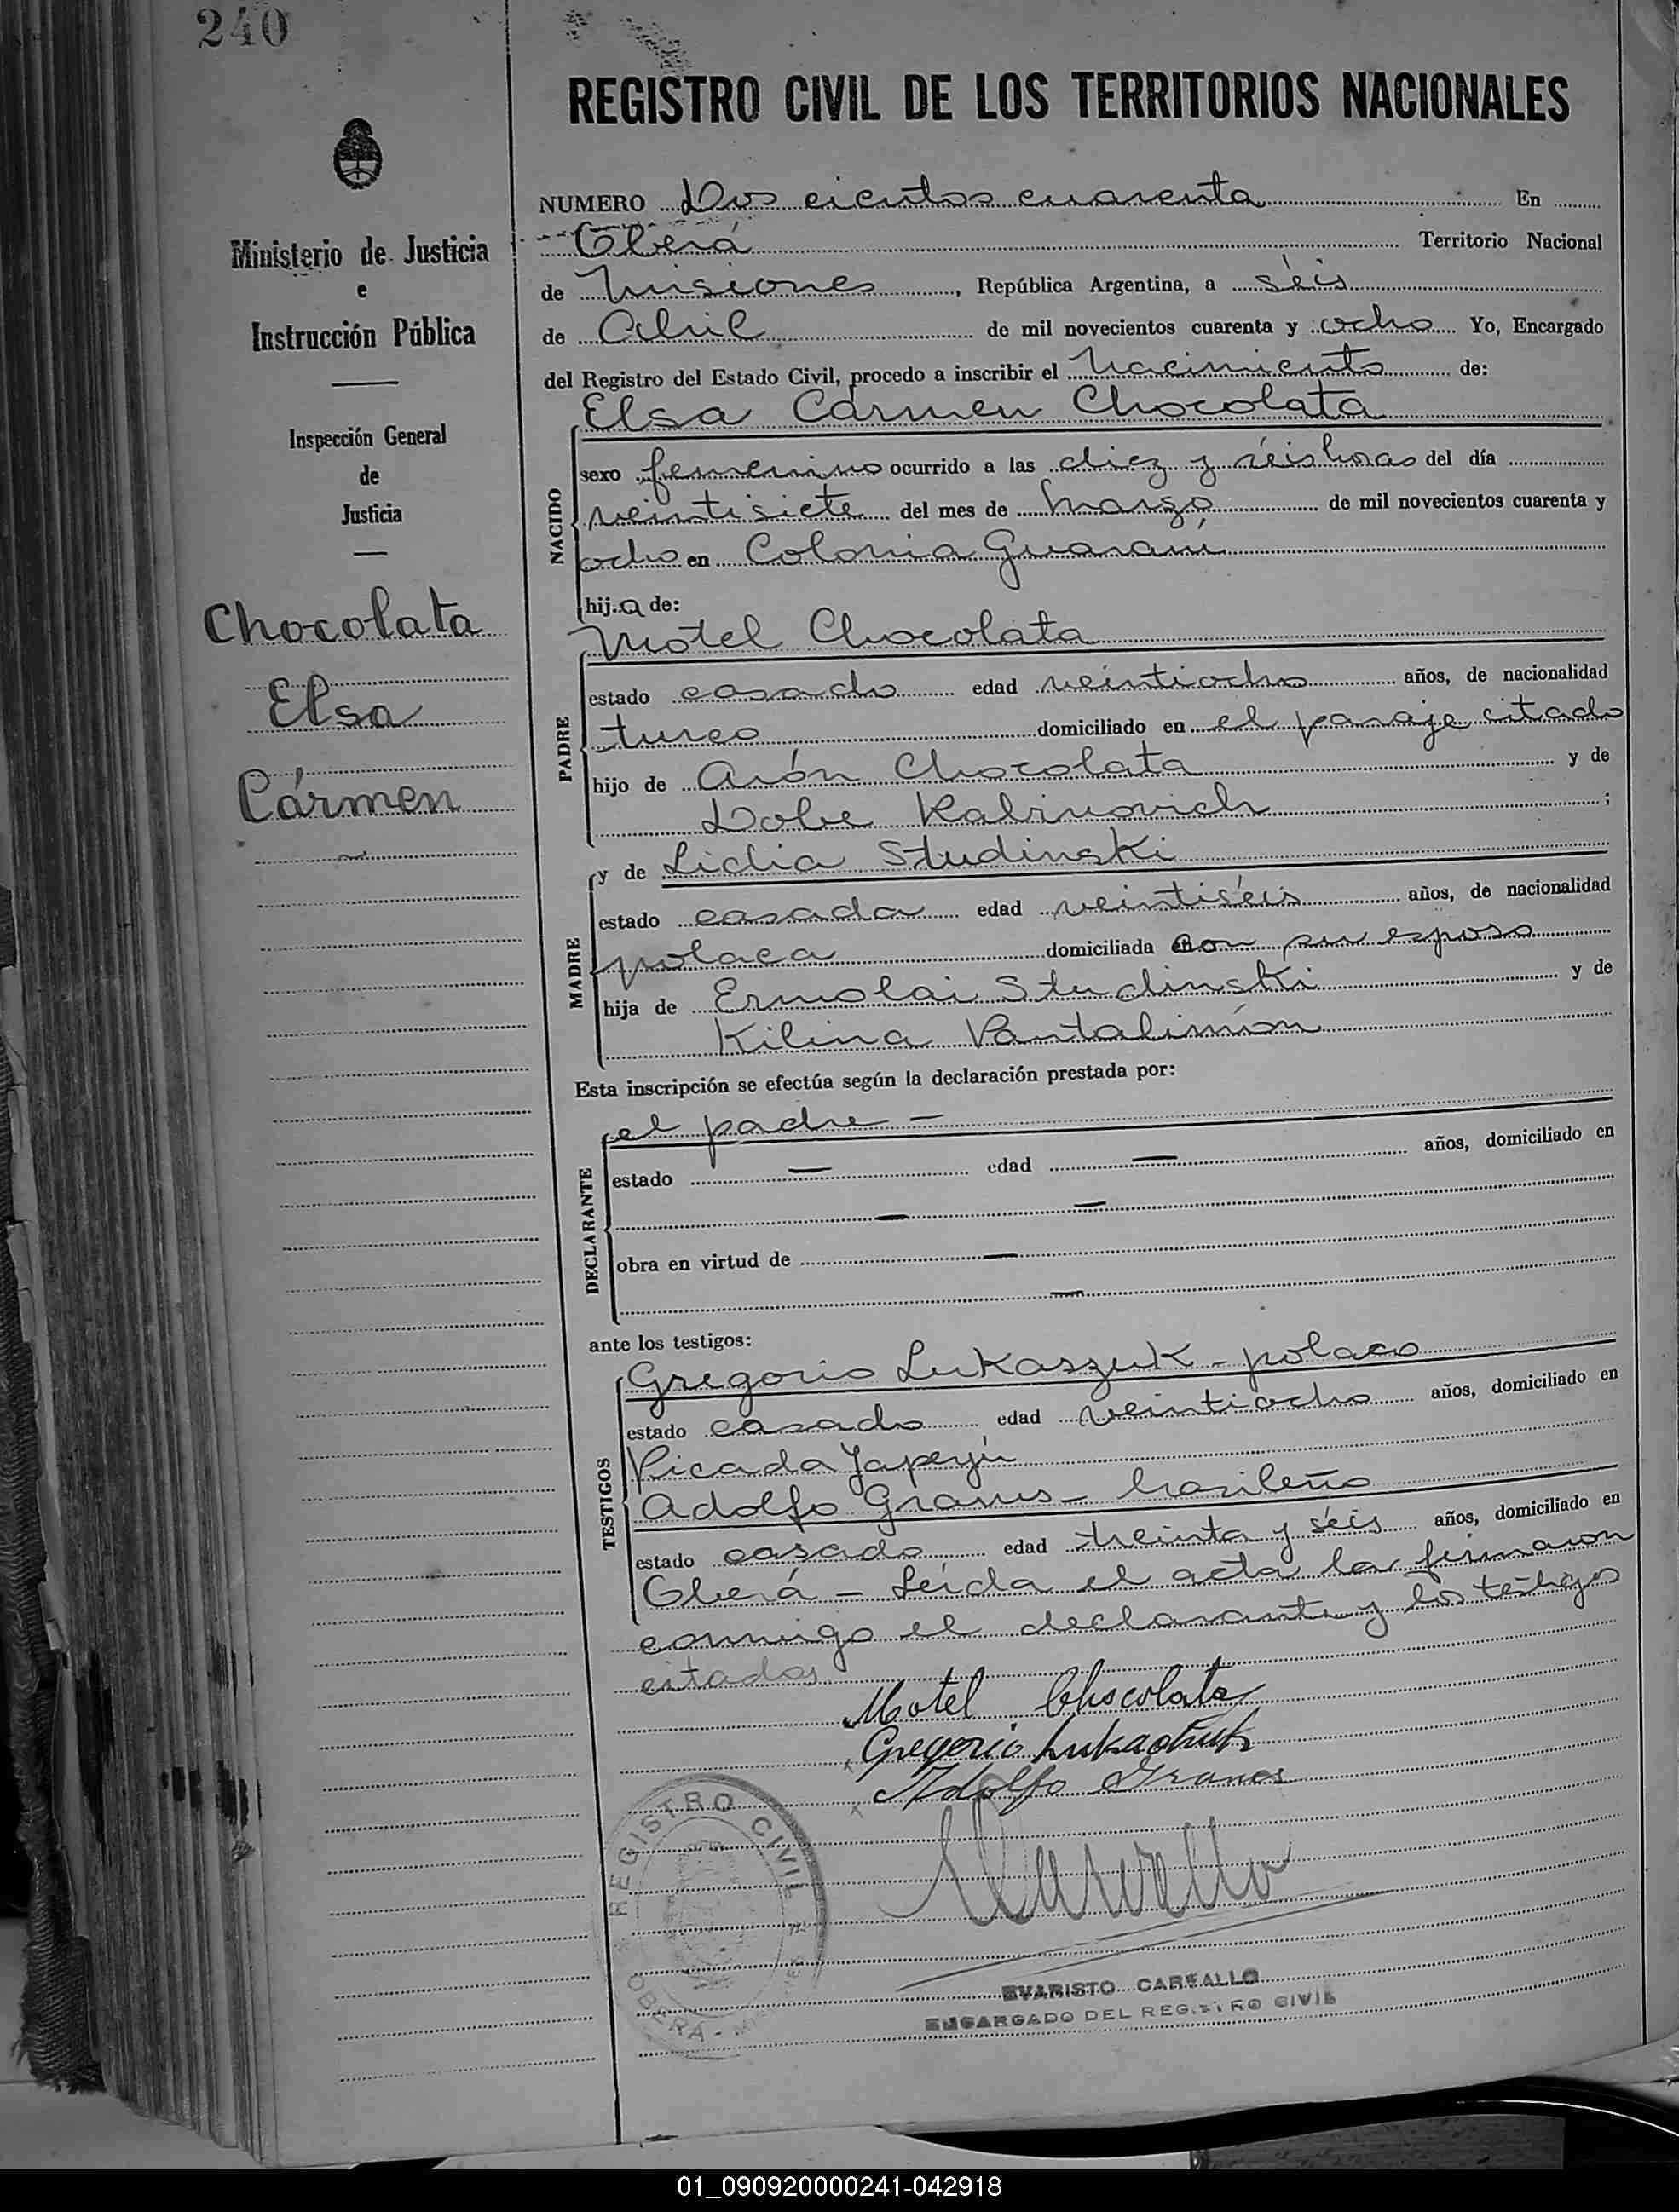 240
REGISTRO CIVIL DE LOS TERRITORIOS NACIONALES
Ministerio de Justicia
e
Instrucción Pública
Inspección General
de
Justicia
Chocolata
Elsa
Cármen
NUMERO Dos cientos cuarenta En
Oberá Territorio Nacional
de Misiones, República Argentina, a séis
de Abril de mil novecientos cuarenta y ocho Yo, Encargado
del Registro del Estado Civil, procedo a inscribir el Nacimiento de:
Elsa Cármen Chocolata
NACIDO
sexo femenino ocurrido a las diez y séis horas del día
veintisiete del mes de Marzo de mil novecientos cuarenta y
ocho en Colonia Guaraní
hija de:
Motel Chocolata
PADRE
estado casado edad veintiocho años, de nacionalidad
turco domiciliado en el paraje citado
hijo de Arón Chocolata y de
Dobe Rabinovich;
y de Lidia Studinski
MADRE
estado casada edad veintiséis años, de nacionalidad
polaca domiciliada con su esposo
hija de Ermolai Studinski y de
Kilina Pantalimón
Esta inscripción se efectúa según la declaración prestada por:
el padre —
DECLARANTE
estado — edad — años, domiciliado en
— —
obra en virtud de —
—
ante los testigos:
Gregorio Lukaszuk - polaco
TESTIGOS
estado casado edad veintiocho años, domiciliado en
Picada Yapeyú
Adolfo Granus - brasileño
estado casado edad treinta y séis años, domiciliado en
Oberá - Leída el acta la firmaron
conmigo el declarante y los testigos
citados
Motel Chocolata
Gregorio Lukachuk
Adolfo Granes
REGISTRO CIVIL
OBERA -
EVARISTO CARVALLO
ENCARGADO DEL REGISTRO CIVIL
01_090920000241-042918